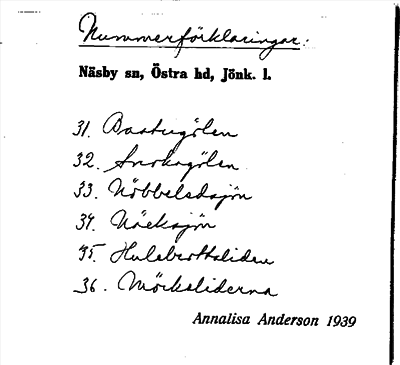 Nummerförklaringar:
Näsby sn, Östra hd, Jönk. l.
31. Bastugölen
32. Snokagölen
33. Nöbbelesjön
34. Näcksjön
35.
36. Mörkeliderna
Annalisa Anderson 1939